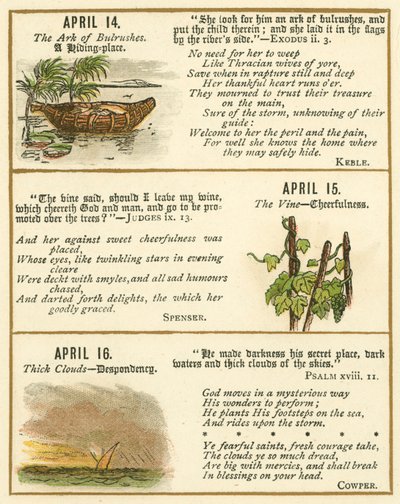 APRIL 14.
The Ark of Bulrushes.
A Hiding-place.
"She took for him an ark of bulrushes, and
put the child therein; and she laid it in the flags
by the river's side."—EXODUS ii. 3.
No need for her to weep
Like Thracian wives of yore,
Save when in rapture still and deep
Her thankful heart runs o'er.
They mourned to trust their treasure
on the main,
Sure of the storm, unknowing of their
guide:
Welcome to her the peril and the pain,
For well she knows the home where
they may safely hide.
KEBLE.
"The vine said, should I leave my wine,
which cheereth God and man, and go to be pro-
moted over the trees?"—JUDGES ix. 13.
And her against sweet cheerfulness was
placed,
Whose eyes, like twinkling stars in evening
cleare
Were deckt with smyles, and all sad humours
chased,
And darted forth delights, the which her
goodly graced.
SPENSER.
APRIL 15.
The Vine—Cheerfulness.
APRIL 16.
Thick Clouds—Despondency.
"He made darkness his secret place, dark
waters and thick clouds of the skies."
PSALM xviii. 11.
God moves in a mysterious way
His wonders to perform;
He plants His footsteps on the sea,
And rides upon the storm.
* * * * * *
Ye fearful saints, fresh courage take,
The clouds ye so much dread,
Are big with mercies, and shall break
In blessings on your head.
COWPER.